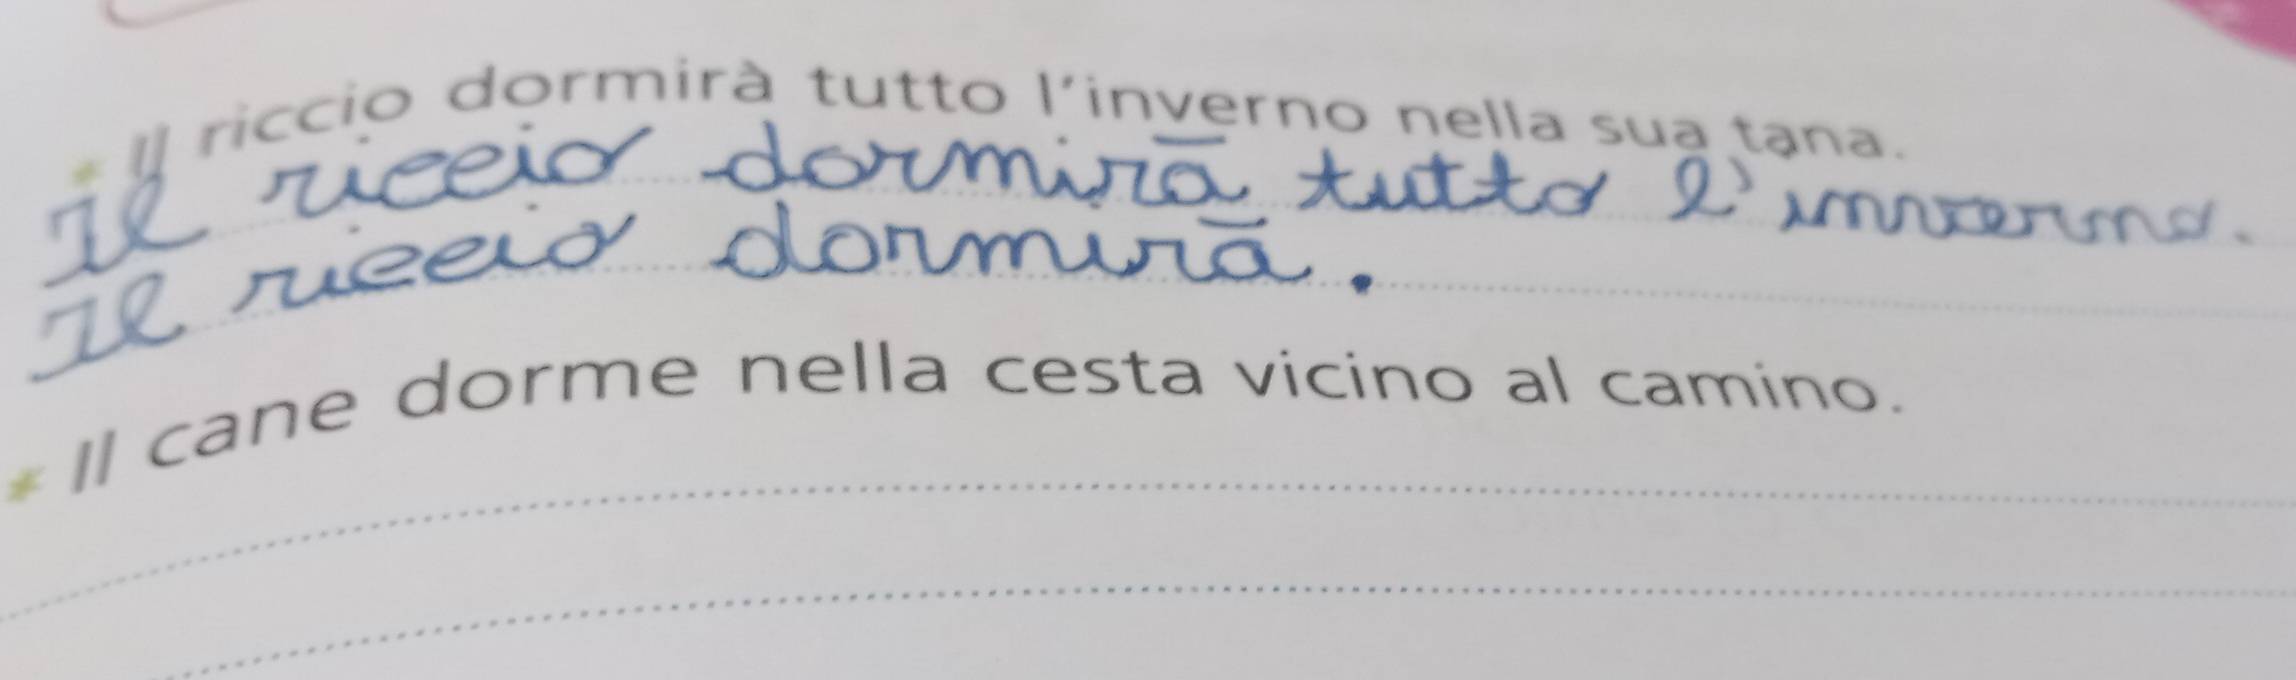 * Il riccio dormirà tutto l'inverno nella sua tana.
Il riccio dormirā tutto l'inverno.
Il riccio dormirā.
* Il cane dorme nella cesta vicino al camino.